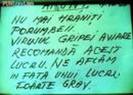 NU MAI HRANITI
PORUMBEII.
VIRUSUL GRIPEI AVIARE
RECOMANDĂ ACEST
LUCRU. NE AFLĂM
ÎN FAȚA UNUI LUCRU
FOARTE GRAV.